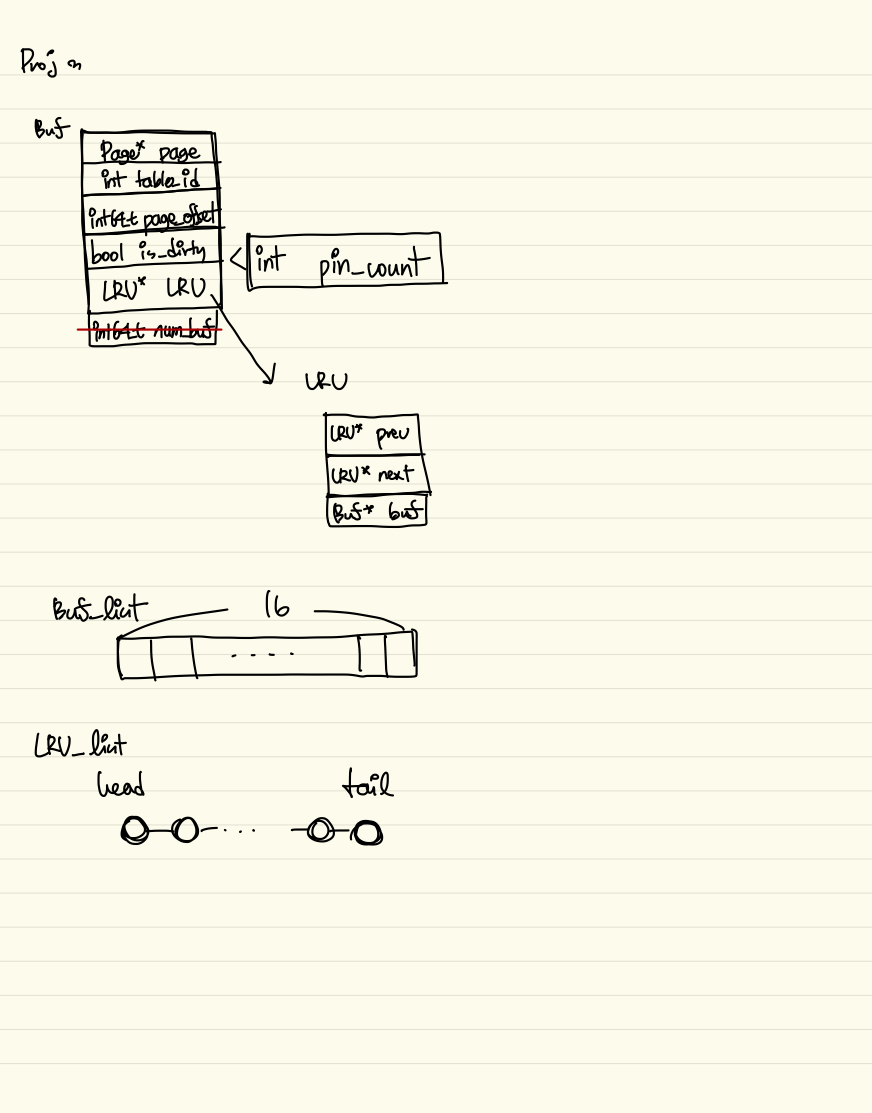 Proj
Buf
Page* page
int table_id
int64_t page_offset
bool is_dirty
int pin_count
LRU* LRU
int64_t num_buf
LRU
LRU* prev
LRU* next
Buf* buf
Buf_list
16
LRU_list
head
tail